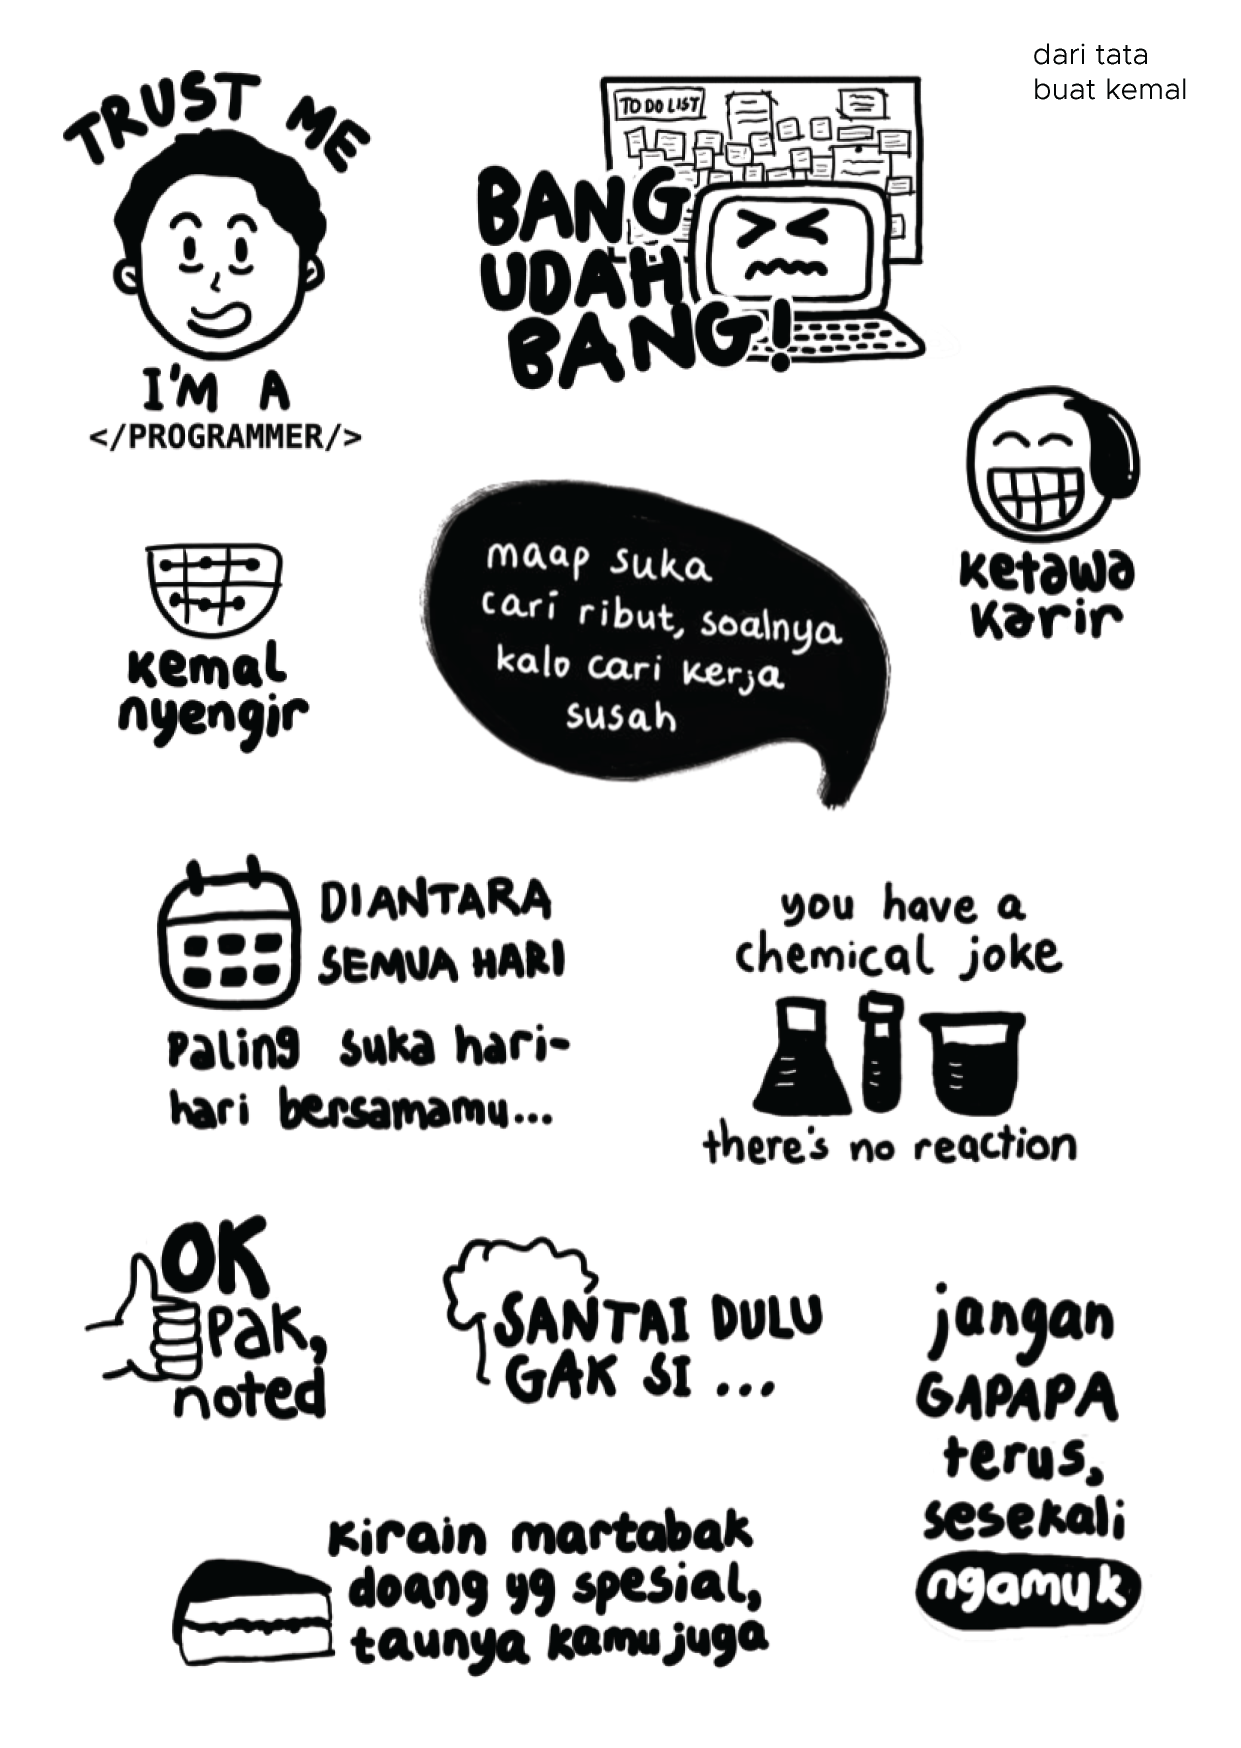 dari tata
buat kemal
TRUST ME
I'M A
</PROGRAMMER/>
TO DO LIST
BANG
UDAH
BANG!
ketawa
karir
kemal
nyengir
maap suka
cari ribut, soalnya
kalo cari kerja
susah
DIANTARA
SEMUA HARI
paling suka hari-
hari bersamamu...
you have a
chemical joke
there's no reaction
OK
pak,
noted
SANTAI DULU
GAK SI ...
jangan
GAPAPA
terus,
sesekali
ngamuk
kirain martabak
doang yg spesial,
taunya kamu juga